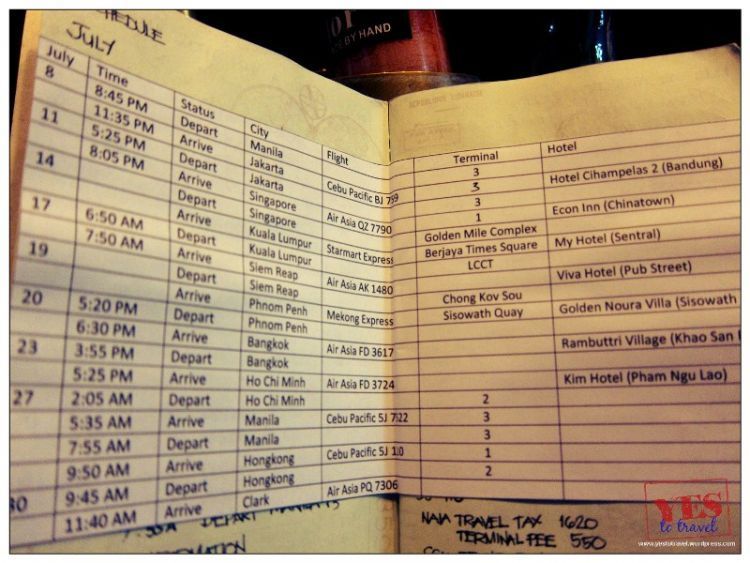 JULY
July Time Status City Flight Terminal Hotel
8 8:45 PM Depart Manila Cebu Pacific 3
11:35 PM Arrive Jakarta 3 Hotel Cihampelas 2 (Bandung)
11 5:25 PM Depart Jakarta Air Asia QZ 7790 3
8:05 PM Arrive Singapore 1 Econ Inn (Chinatown)
14 Depart Singapore Starmart Express Golden Mile Complex
Arrive Kuala Lumpur Berjaya Times Square My Hotel (Sentral)
17 6:50 AM Depart Kuala Lumpur Air Asia AK 1480 LCCT
7:50 AM Arrive Siem Reap Viva Hotel (Pub Street)
19 Depart Siem Reap Mekong Express Chong Kov Sou
Arrive Phnom Penh Sisowath Quay Golden Noura Villa (Sisowath
20 5:20 PM Depart Phnom Penh Air Asia FD 3617
6:30 PM Arrive Bangkok Rambuttri Village (Khao San
23 3:55 PM Depart Bangkok Air Asia FD 3724
5:25 PM Arrive Ho Chi Minh Kim Hotel (Pham Ngu Lao)
27 2:05 AM Depart Ho Chi Minh Cebu Pacific 5J 2
5:35 AM Arrive Manila 3
7:55 AM Depart Manila Cebu Pacific 5J 3
9:50 AM Arrive Hongkong 1
30 9:45 AM Depart Hongkong Air Asia PQ 7306 2
11:40 AM Arrive Clark
DEPART
NAIA TRAVEL TAX 1620
TERMINAL FEE 550
BY HAND
YES
to travel
www.yestotravel.wordpress.com